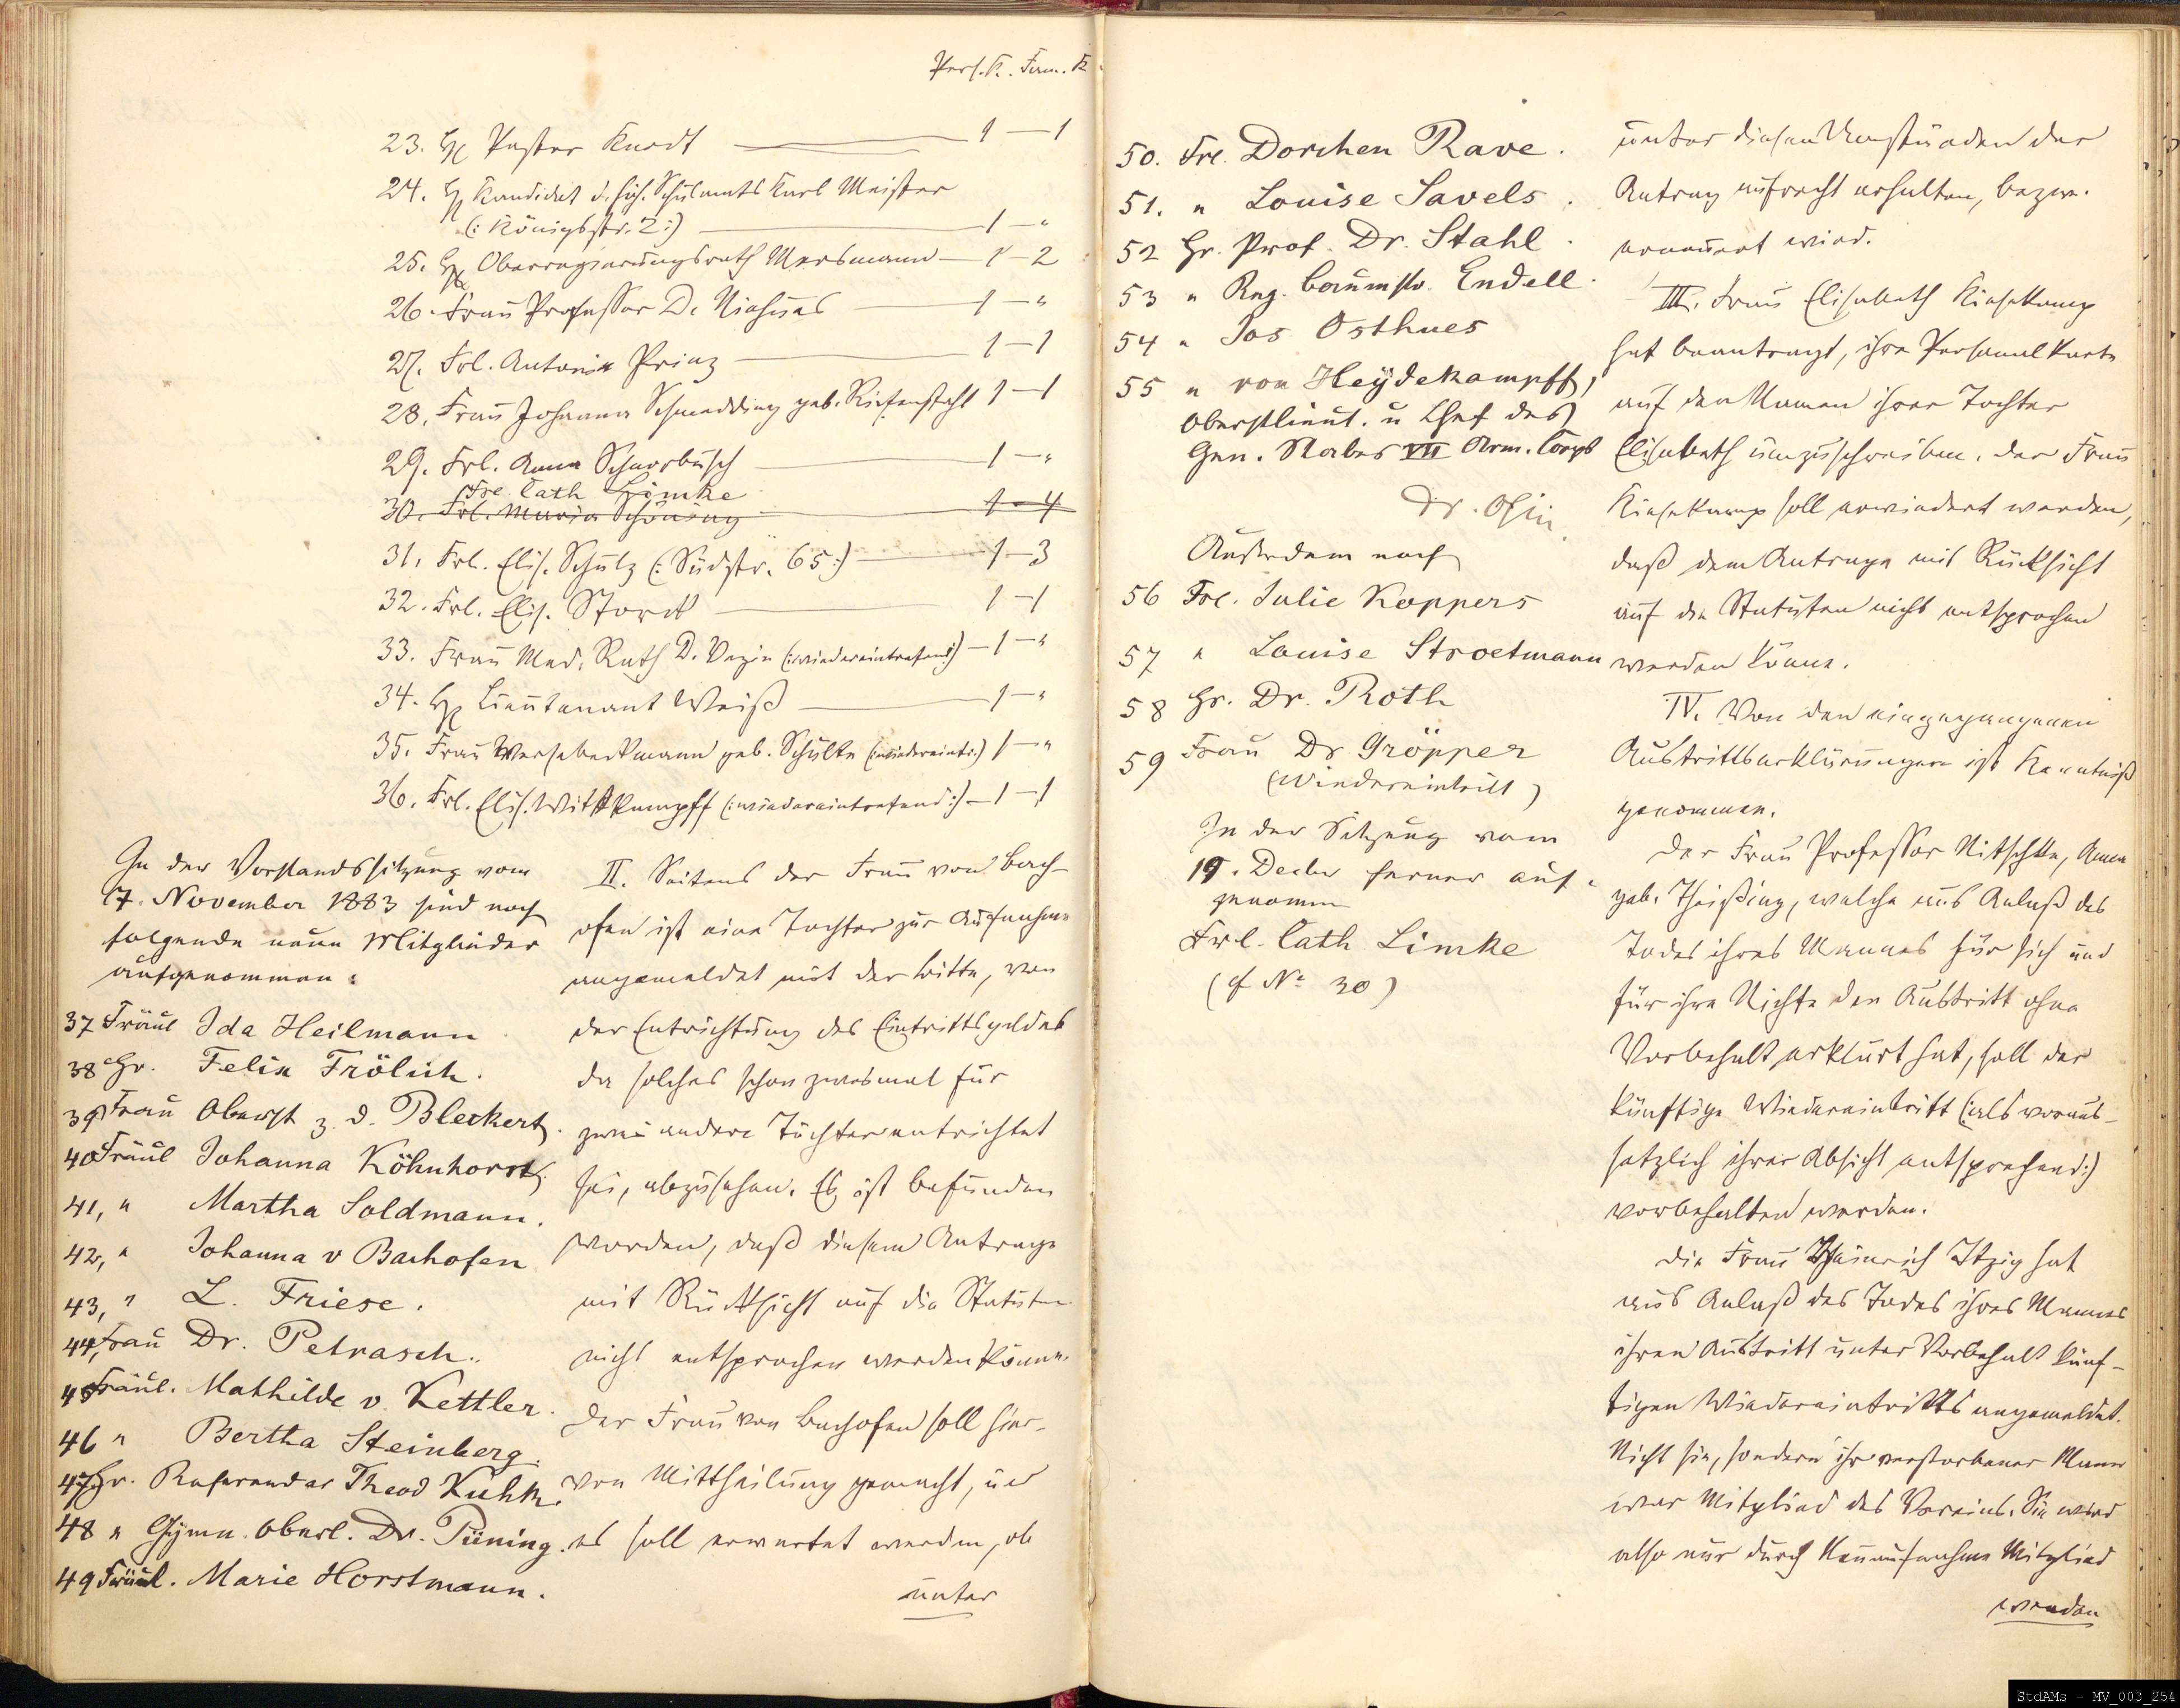 Pers.K. Fam.K
23. H. Pastor Kundt 1 — 1
24. H. Kandidat d. höh. Schulamts Karl Meister
(: Königsstr. 2 :) 1 — "
25. H. Oberregierungsrath Mersmann — 1 — 2
26. Frau Professor D. Niehues — 1 — "
27. Frl. Antonia Prinz 1 — 1
28. Frau Johanna Schmedding geb. Riefenstahl 1 — 1
29. Frl. Anna Schnorbusch 1 — "
Frl. Cath Limke
30. Frl. Maria Schöning 1 - 4
31. Frl. Elis. Schulz (: Südstr. 65 :) — 1 — 3
32. Frl. Elis. Storck 1 — 1
33. Frau Med. Rath D. Vezin (: wiedereintretend :) — 1 — "
34. H. Lieutenant Weiß 1 — "
35. Frau Wersebeckmann geb. Schulte (: wiedereintr. :) 1 — "
36. Frl. Elis. Wittkampff (: wiedereintretend :) — 1 — 1
In der Vorstandssitzung vom
17. November 1883 sind noch
folgende neue Mitglieder
aufgenommen:
37 Fräul Ida Heilmann
38 Hr. Felix Frölich.
39 Frau Oberst z. d. Bleckert.
40 Fräul Johanna Köhnhorst.
41, " Martha Soldmann.
42, " Johanna v Bachofen
43, " L. Friese.
44, Frau Dr. Petrasch.
45 Fräul. Mathilde v. Kettler.
46 " Bertha Steinberg.
47 Hr. Referendar Theod Kuhk.
48 " Gymn. Oberl. Dr. Püning.
49 Fräul. Marie Horstmann.
II. Seitens der Frau von Bach-
ofen ist eine Tochter zur Aufnahme
angemeldet mit der Bitte, von
der Entrichtung des Eintrittsgeldes
da solches schon zweimal für
zwei andere Töchter entrichtet
sei, abzusehen. Es ist befunden
worden, daß diesem Antrage
mit Rücksicht auf die Statuten
nicht entsprochen werden könne.
Der Frau von Bachofen soll hier-
von Mittheilung gemacht, und
es soll erwartet werden, ob
unter
50. Frl. Dorchen Rave.
51. " Louise Savels.
52 Hr. Prof. Dr. Stahl.
53 " Reg. Baumstr. Endell.
54 " Jos Osthues
55 " von Heydekampff,
Oberstlieut. u Chef des
Gen. Stabes VII Arm. Corps
Außerdem noch
56 Frl. Julie Koppers
57 " Louise Stroetmann
58 Hr. Dr. Roth
59 Frau Dr Gröpper
(Wiedereintritt)
In der Sitzung vom
19. Decbr ferner auf-
genomm
Frl. Cath Limke
(cf No 30)
unter diesen Umständen der
Antrag aufrecht erhalten, bezw.
erneuert wird.
III. Frau Elisabeth Kiesekamp
hat beantragt, ihre Personalkarte
auf den Namen ihrer Tochter
Elisabeth umzuschreiben. Der Frau
Kiesekamp soll erwiedert werden,
daß dem Antrage mit Rücksicht
auf die Statuten nicht entsprochen
werden könne.
IV. Von den eingegangenen
Austrittserklärungen ist Kenntniß
genommen.
Der Frau Professor Nitschke, Anna
geb. Theißing, welche aus Anlaß des
Todes ihres Mannes für sich und
für ihre Nichte den Austritt ohne
Vorbehalt erklärt hat, soll der
künftige Wiedereintritt (: als voraus-
setzlich ihrer Absicht entsprechend :)
vorbehalten werden.
Die Frau Heinrich Itzig hat
aus Anlaß des Todes ihres Mannes
ihren Austritt unter Vorbehalt künf-
tigen Wiedereintritts angemeldet.
Nicht sie, sondern ihr verstorbener Mann
war Mitglied des Vereins. Sie wird
also nur durch Neuaufnahme Mitglied
werden
StdAMs - MV_003_254